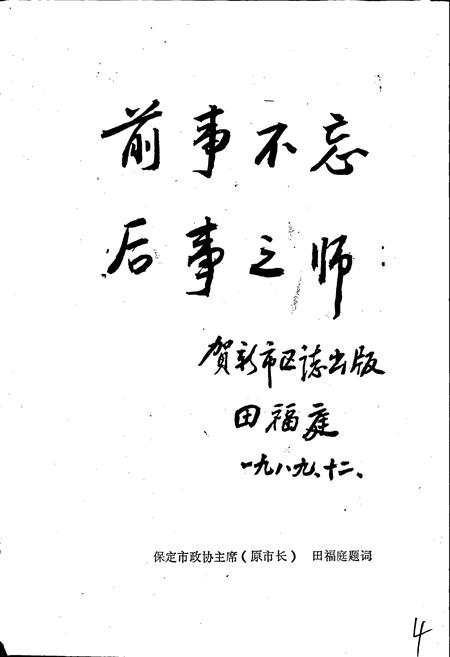 前事不忘
后事之师
贺新市区誌出版
田福庭
一九八九、十二、
保定市政协主席(原市长) 田福庭题词
4